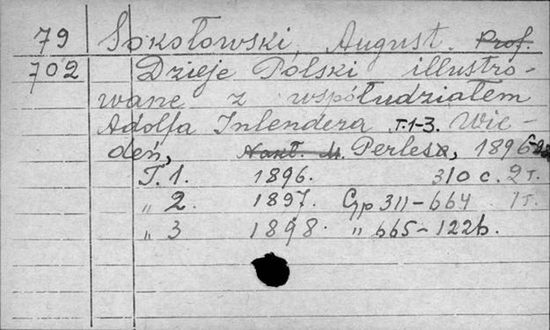 79 Sokołowski, August. Prof.
702 Dzieje Polski illustro-
wane z współudziałem
Adolfa Inlendera T.1-3. Wie-
deń, Nakł. M. Perlesa, 1896-98
T. 1. 1896. 310 c. 2 т.
„ 2. 1897. Cтр 311-664 1 т.
„ 3 1898. „ 665-1226.